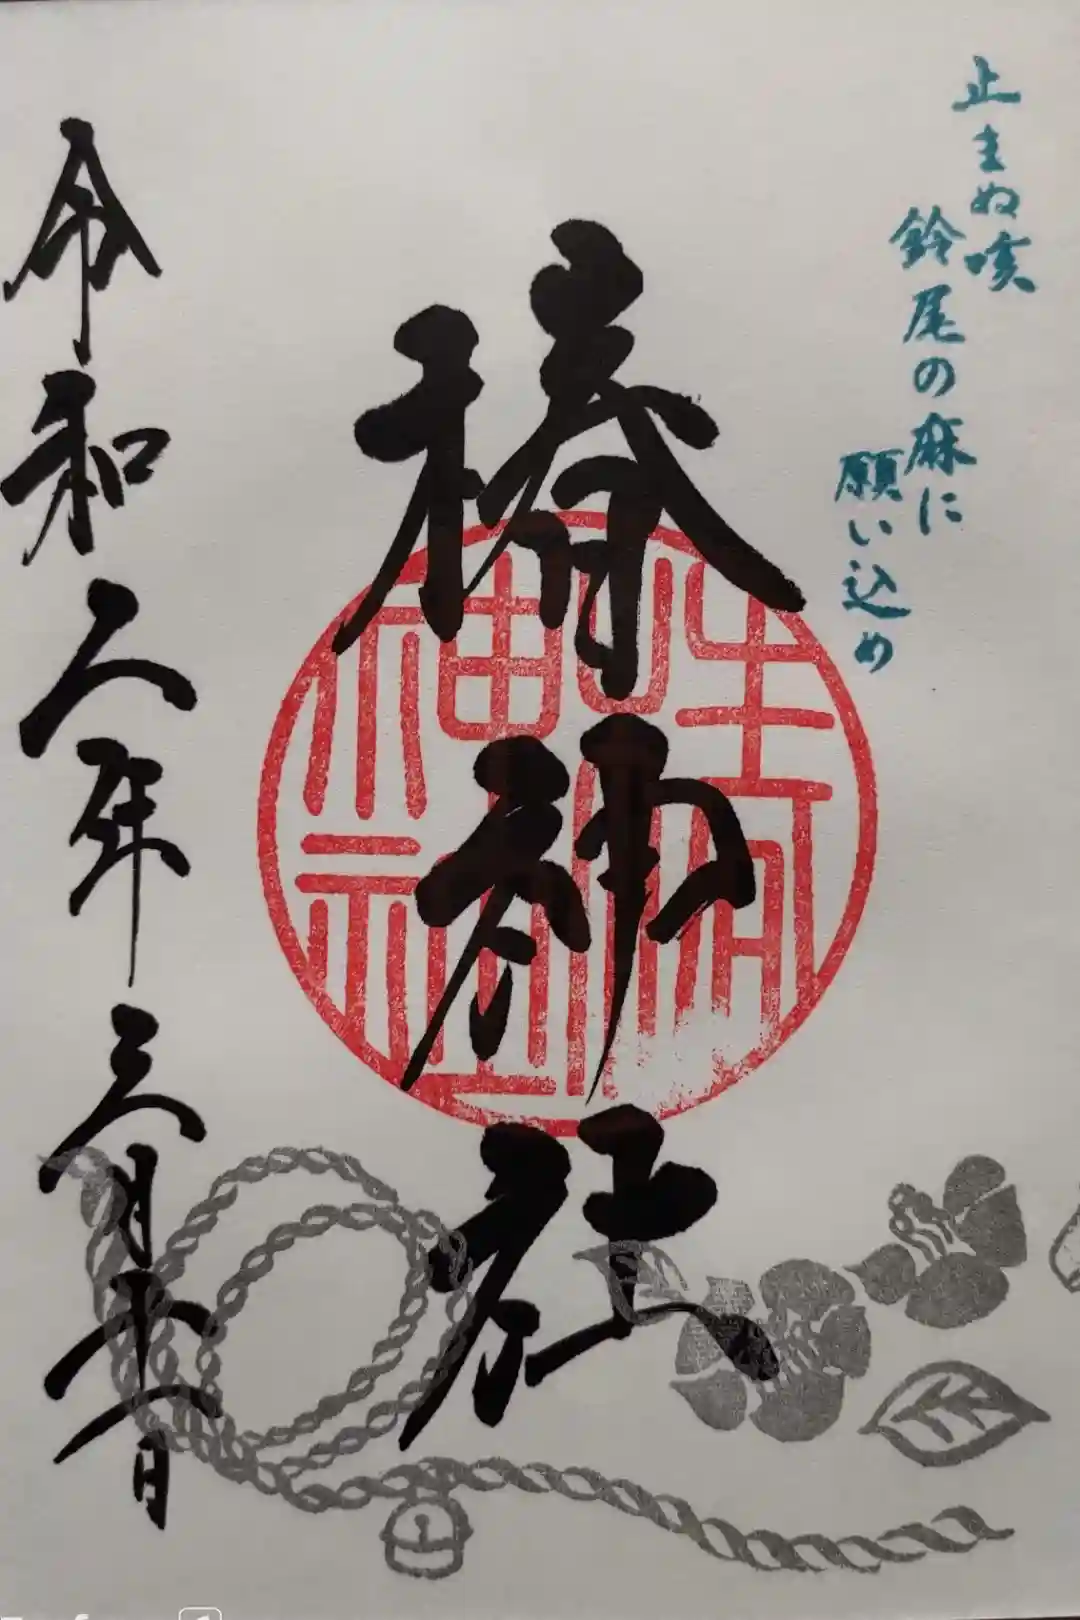 止まぬ咳
鈴尾の麻に
願い込め
椿神社
令和二年三月十一日